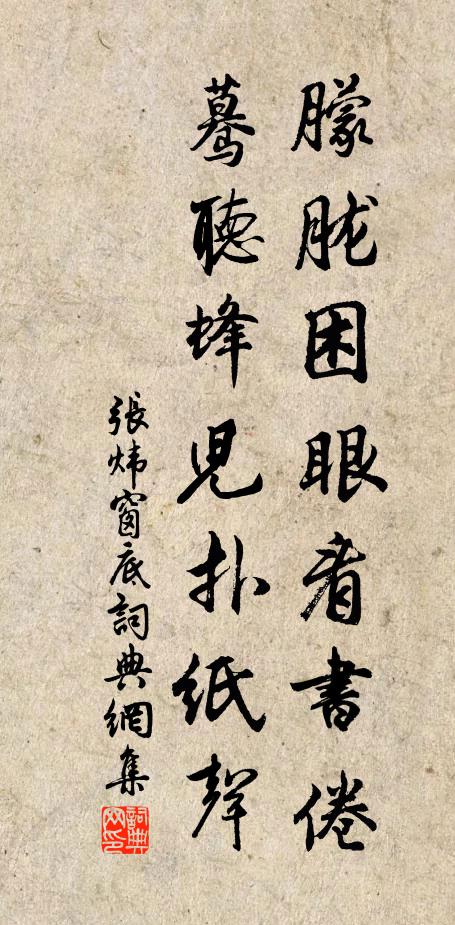 朦胧困眼看書倦
驀聽蜂兒扑紙聲
張煒窗底詞典網集
詞典
网印